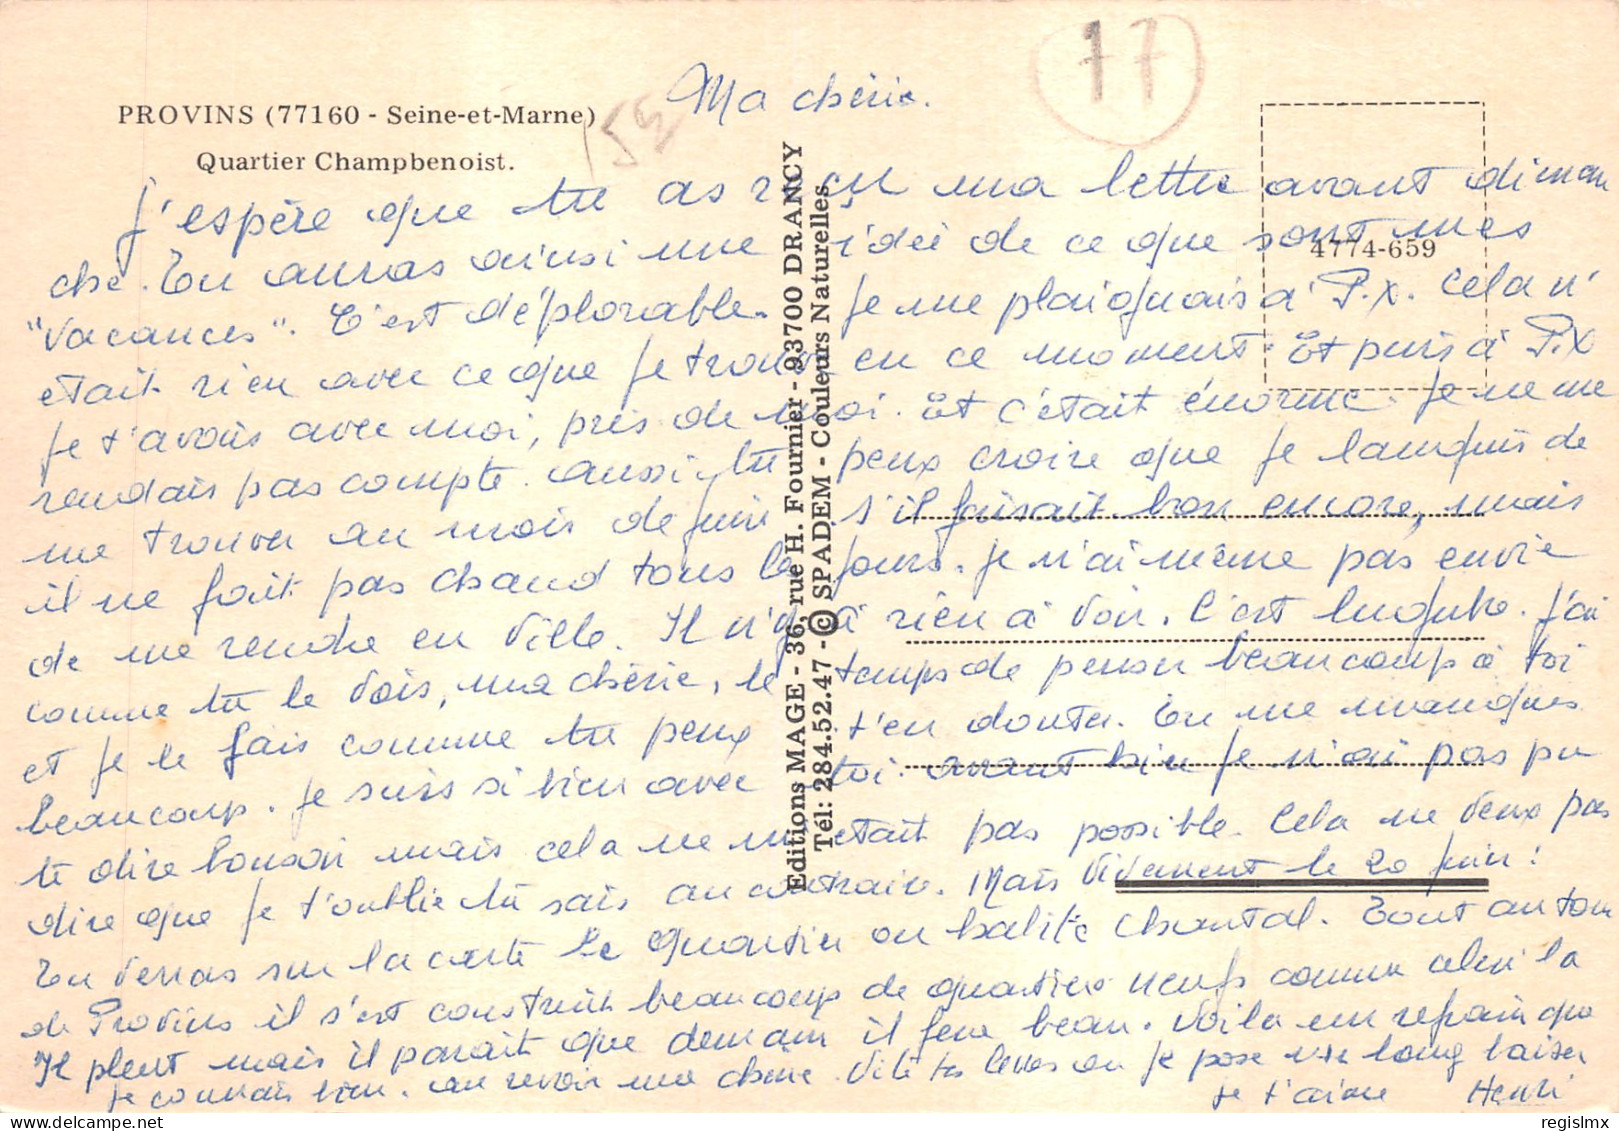 PROVINS (77160 - Seine-et-Marne)
Quartier Champbenoist.
77
Ma chérie.
4774-659
J'espère que tu as reçu ma lettre avant diman
che. Tu auras ainsi une idée de ce que sont mes
"Vacances". C'est déplorable. Je me plaignais à P.X. Cela n'
était rien avec ce que je trouve en ce moment. Et puis à P.X
Je t'avais avec moi, près de moi. Et c'était énorme. Je ne me
rendais pas compte. aussi tu peux croire que je languis de
me trouver au mois de juin s'il faisait bon encore, mais
il ne fait pas chaud tous les jours. Je n'ai même pas envie
de me rendre en Ville. Il n'y a rien à voir. C'est lugubre. J'ai
comme tu le vois, ma chérie, le temps de penser beaucoup à toi
et je le fais comme tu peux t'en douter. Tu me manques
beaucoup. Je suis si bien avec toi. avant hier je n'ai pas pu
te dire bonsoir mais cela ne m'était pas possible. Cela ne veux pas
dire que je t'oublie tu sais au contraire. Mais Vivement le 20 juin!
Tu verras sur la carte le quartier ou habite Chantal. Tout au tour
de Provins il s'est construit beaucoup de quartiers neufs comme celui là
Il pleut mais il parait que demain il fera beau. Voila un refrain que
je connais bien. au revoir ma chérie. Vite tes lèvres ou je pose un long baiser
Je t'aime Henri
Editions MAGE - 36, rue H. Fournier - 93700 DRANCY
Tél: 284.52.47 - © SPADEM - Couleurs Naturelles
© regislmx